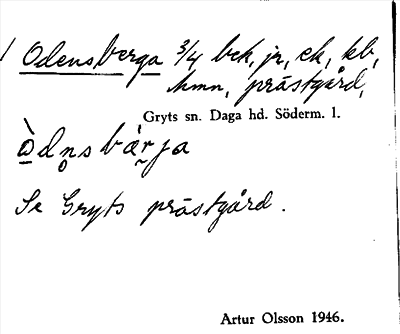 1 Odensberga 3/4 bck, jr, ek, kb,
kmn, prästgård,
Gryts sn. Daga hd. Söderm. l.
ò̱dn̥sbæ̀r̰ja
Se Gryts prästgård.
Artur Olsson 1946.